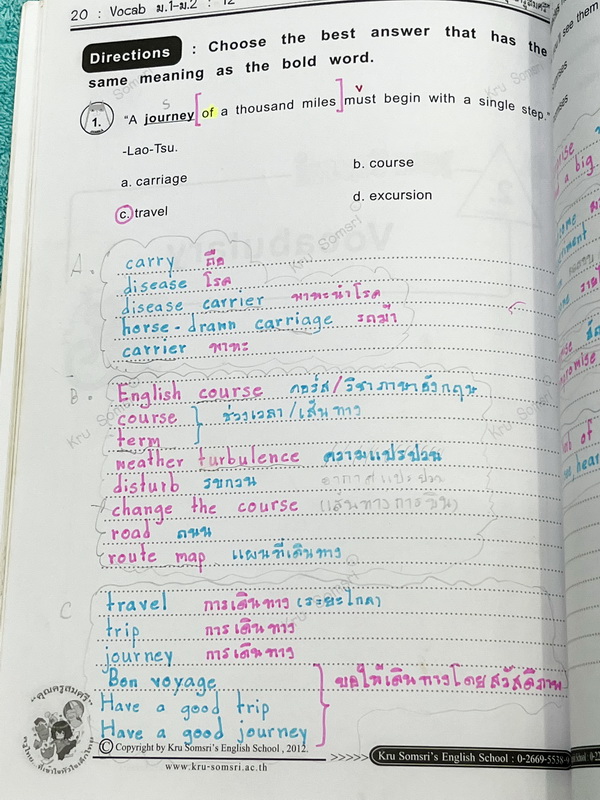 20 : Vocab ม.1-ม.2 : 12
Directions : Choose the best answer that has the
same meaning as the bold word.
S V
1. "A journey [of a thousand miles] must begin with a single step."
-Lao-Tsu.
a. carriage b. course
c. travel d. excursion
A. carry ถือ
disease โรค
disease carrier พาหะนำโรค
horse-drawn carriage รถม้า
carrier พาหะ
B. English course คอร์ส/วิชาภาษาอังกฤษ
course } ช่วงเวลา/เส้นทาง
term
weather turbulence ความแปรปวน
disturb รบกวน อากาศแปรปวน
change the course (เส้นทางการบิน)
road ถนน
route map แผนที่เดินทาง
C travel การเดินทาง (ระยะไกล)
trip การเดินทาง
journey การเดินทาง
Bon voyage } ขอให้เดินทางโดยสวัสดิภาพ
Have a good trip
Have a good journey
© Copyright by Kru Somsri's English School , 2012.
>>>>> Kru Somsri's English School : 0-2669-5538-9
www.kru-somsri.ac.th
"คุณครูสมศรี"
Kru Somsri ©